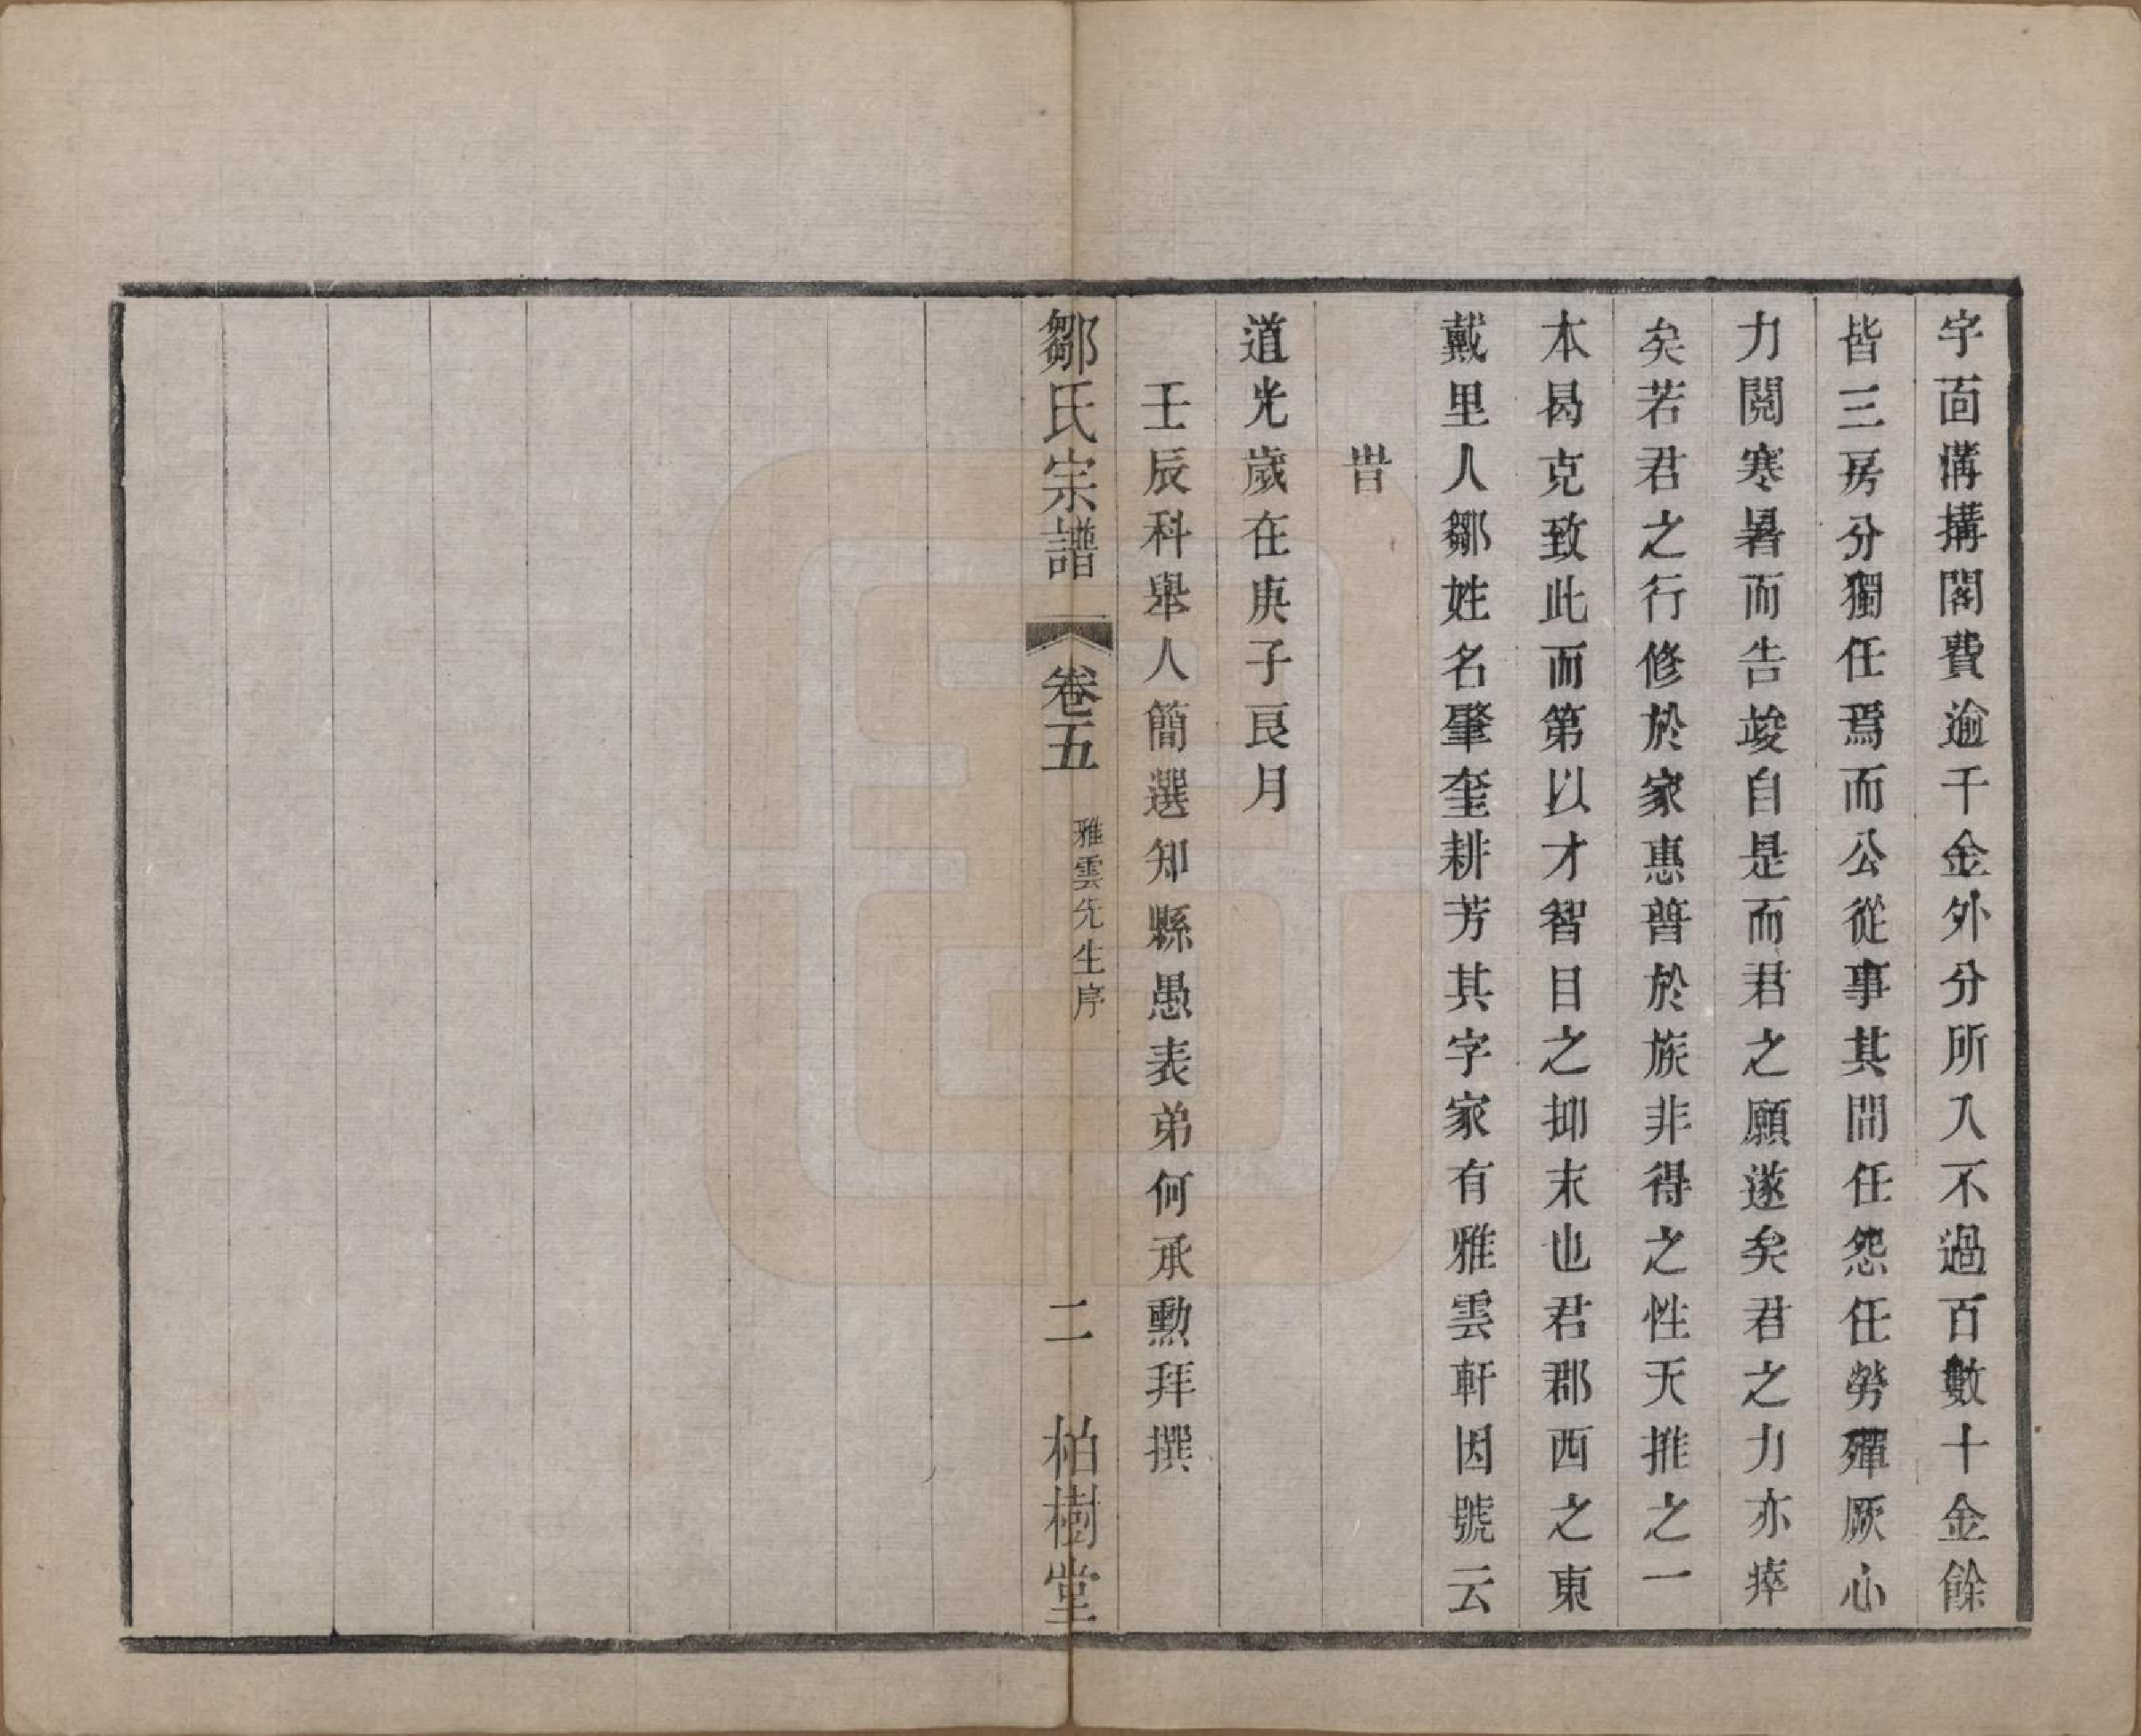 字面溝搆閣費逾千金外分所入不過百數十金餘
皆三房分獨任焉而公從事其間任怨任勞殫厥心
力閱寒暑而告竣自是而君之願遂矣君之力亦瘁
矣若君之行修於家惠普於族非得之性天推之一
本曷克致此而第以才智目之抑末也君郡西之東
戴里人鄒姓名肇奎耕芳其字家有雅雲軒因號云
旹
道光歲在庚子良月
壬辰科舉人簡選知縣愚表弟何承勲拜撰
鄒氏宗譜 卷五 雅雲先生序 二 柏樹堂